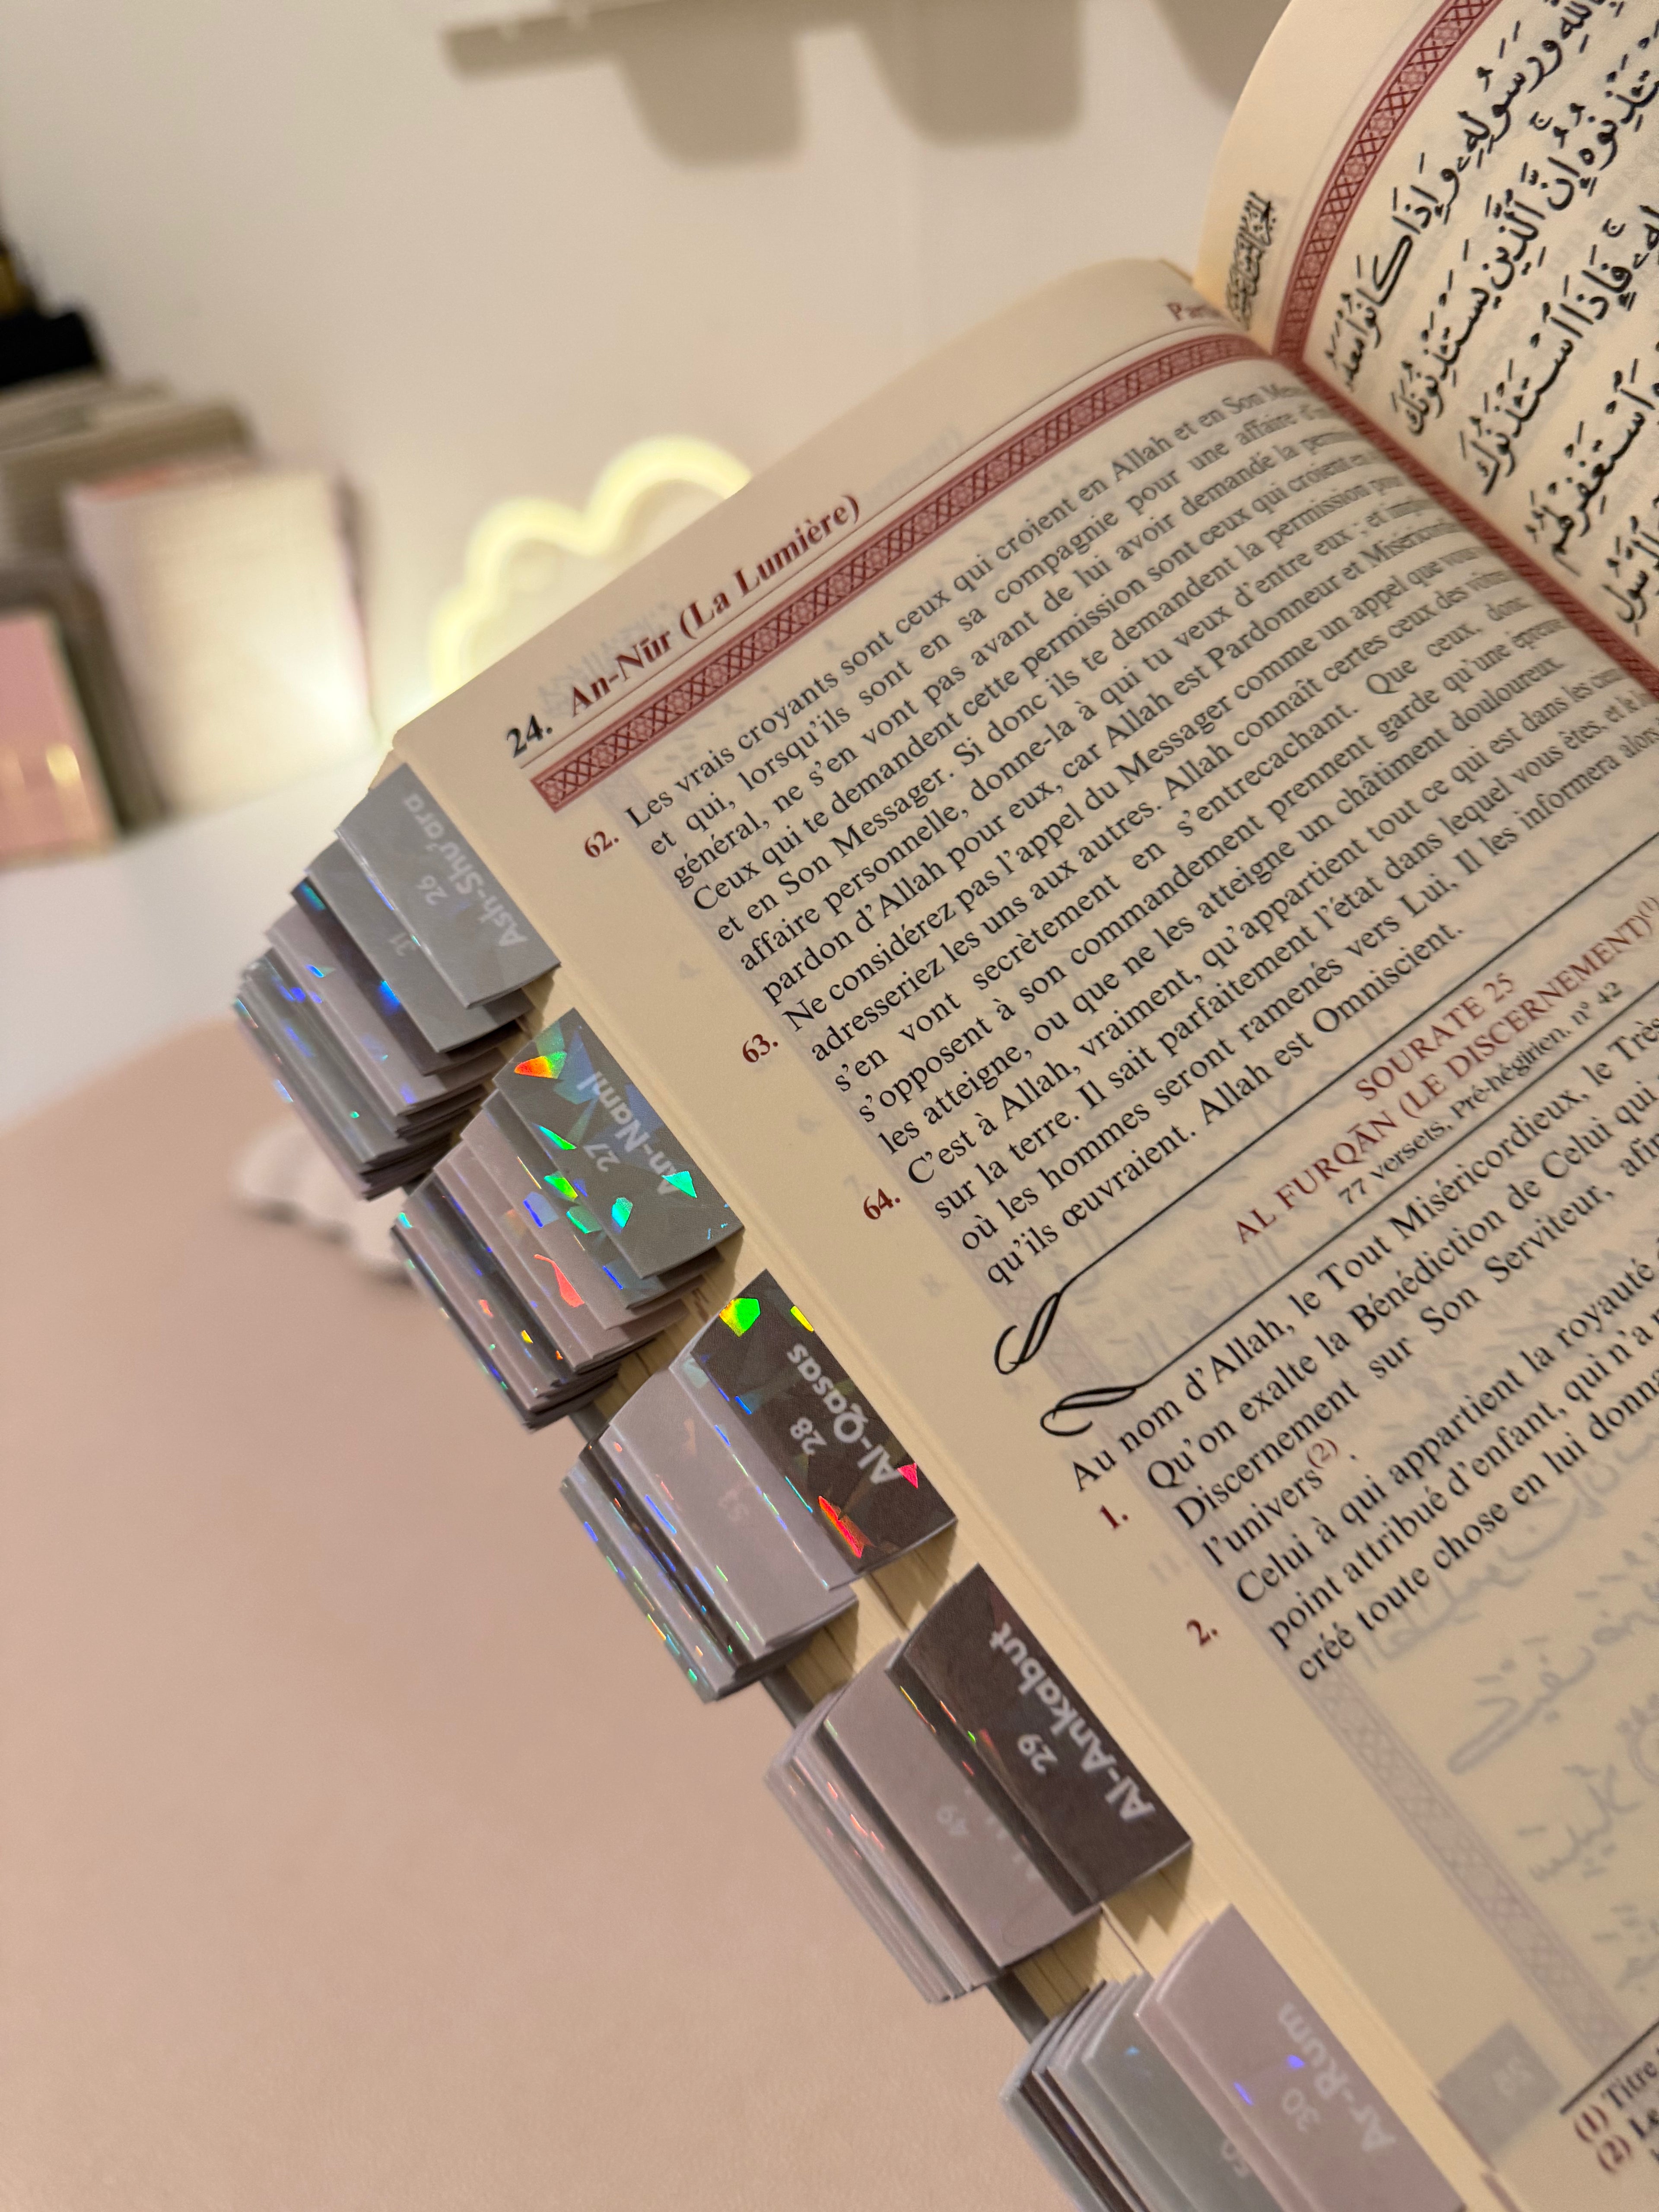 24. An-Nūr (La Lumière)
62. Les vrais croyants sont ceux qui croient en Allah et en Son
et qui, lorsqu'ils sont en sa compagnie pour une affaire
général, ne s'en vont pas avant de lui avoir demandé la
Ceux qui te demandent cette permission sont ceux qui croient en
et en Son Messager. Si donc ils te demandent la permission pour
affaire personnelle, donne-la à qui tu veux d'entre eux ; et
pardon d'Allah pour eux, car Allah est Pardonneur et
63. Ne considérez pas l'appel du Messager comme un appel que vous
adresseriez les uns aux autres. Allah connaît certes ceux des
s'en vont secrètement en s'entrecachant. Que ceux, donc
s'opposent à son commandement prennent garde qu'une épreuve
les atteigne, ou que ne les atteigne un châtiment douloureux.
64. C'est à Allah, vraiment, qu'appartient tout ce qui est dans les
sur la terre. Il sait parfaitement l'état dans lequel vous êtes, et le
où les hommes seront ramenés vers Lui, Il les informera alors
qu'ils œuvraient. Allah est Omniscient.
SOURATE 25
AL FURQĀN (LE DISCERNEMENT)(1)
77 versets, Pré-hégirien, n° 42
Au nom d'Allah, le Tout Miséricordieux, le Très
1. Qu'on exalte la Bénédiction de Celui qui
Discernement sur Son Serviteur, afin
l'univers(2).
2. Celui à qui appartient la royauté
point attribué d'enfant, qui n'a
créé toute chose en lui donna
(1) Titre
(2) Le
وَرَسُولِهِۦ وَإِذَا كَانُوا۟ مَعَهُۥ
إِنَّ ٱلَّذِينَ يَسْتَـْٔذِنُونَكَ
فَإِذَا ٱسْتَـْٔذَنُوكَ
وَٱسْتَغْفِرْ لَهُمُ
Ash-Shu'ara
26
31
An-Naml
27
Al-Qasas
28
53
Al-Ankabut
29
49
Ar-Rum
30
50